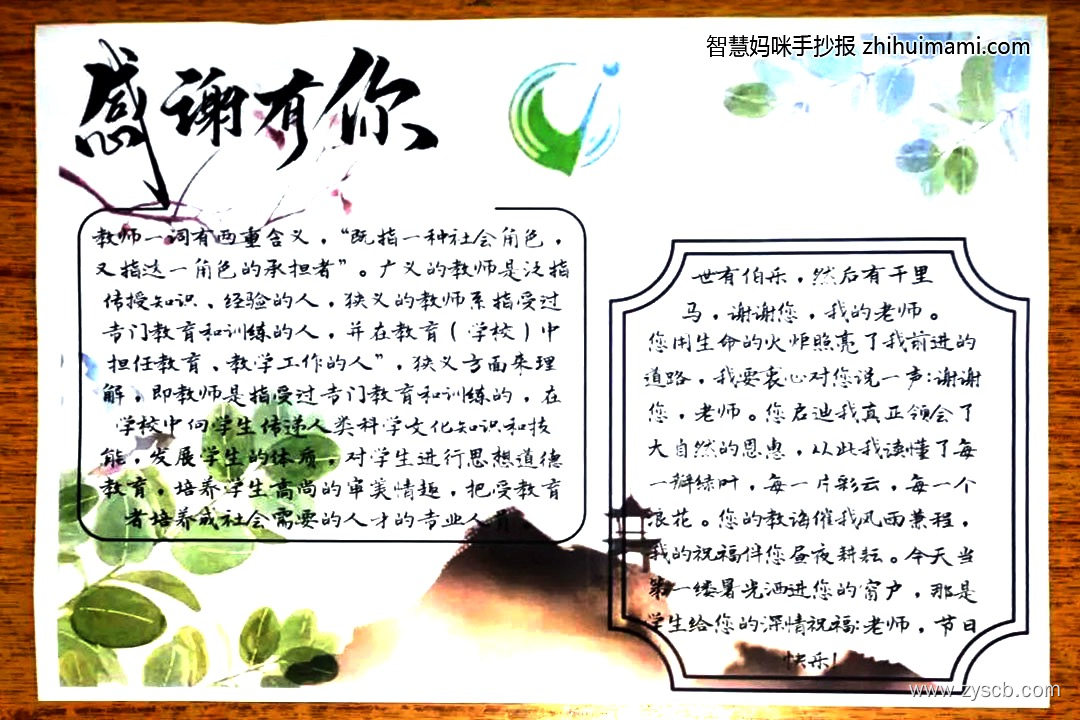 智慧妈咪手抄报 zhihuimami.com
感谢有你
教师一词有两重含义，“既指一种社会角色，
又指这一角色的承担者”。广义的教师是泛指
传授知识、经验的人，狭义的教师系指受过
专门教育和训练的人，并在教育（学校）中
担任教育、教学工作的人”，狭义方面来理
解，即教师是指受过专门教育和训练的，在
学校中向学生传递人类科学文化知识和技
能，发展学生的体质，对学生进行思想道德
教育，培养学生高尚的审美情趣，把受教育
者培养成社会需要的人才的专业人员。
世有伯乐，然后有千里
马，谢谢您，我的老师。
您用生命的火炬照亮了我前进的
道路，我要衷心对您说一声:谢谢
您，老师。您启迪我真正领会了
大自然的恩惠，从此我读懂了每
一瓣绿叶，每一片彩云，每一个
浪花。您的教诲催我风雨兼程，
我的祝福伴您昼夜耕耘。今天当
第一缕暑光洒进您的窗户，那是
学生给您的深情祝福:老师，节日
快乐!
www.zyscb.com